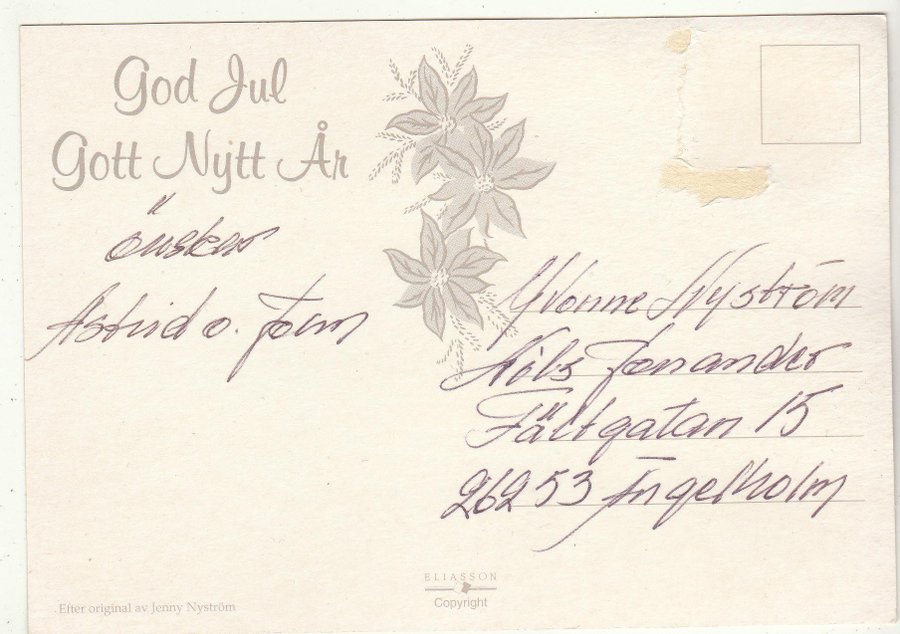 God Jul
Gott Nytt År
önskar
Astrid o.
Yvonne Nyström
Nils Jonander
Fältgatan 15
26253 Ängelholm
ELIASSON
Copyright
Efter original av Jenny Nyström